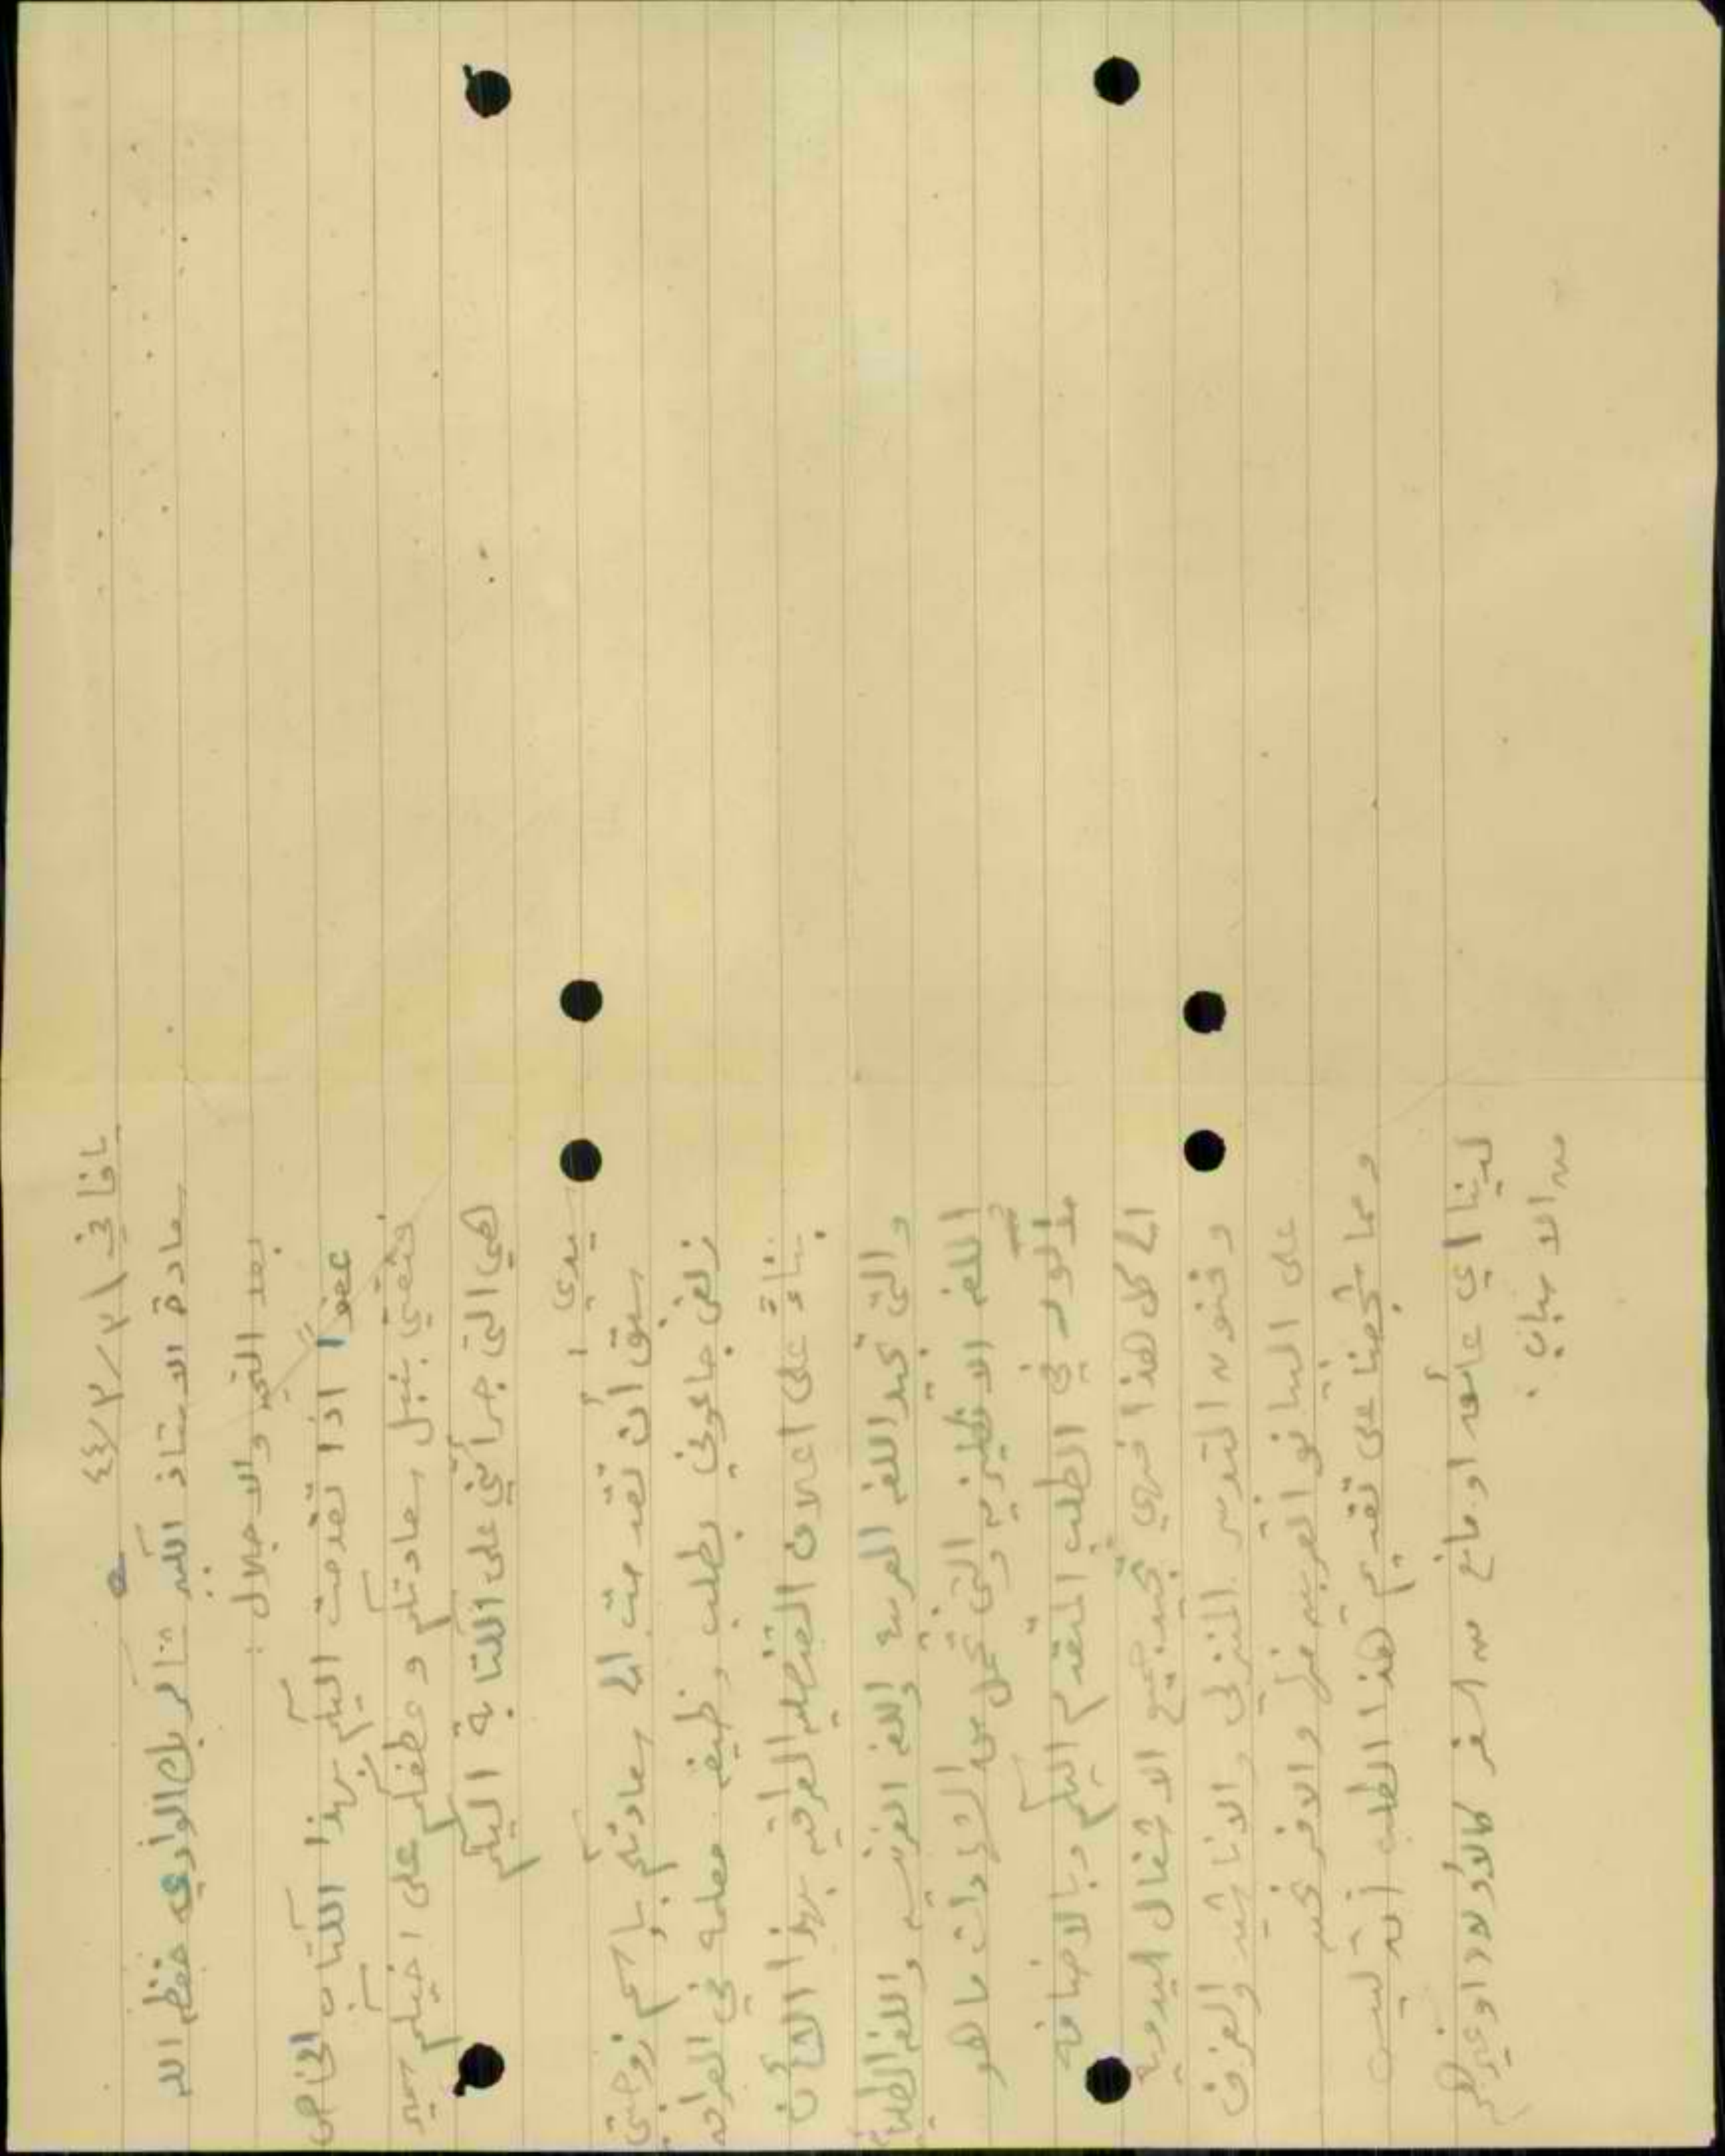 يافا في ٣١/٣/٤٤
سعادة الاستاذ الكبير شاكر بك الوادي حفظه الله
بعد التحيه والاجلال :
عفوًا اذا تقدمت اليكم بهذا الكتاب الخاص
فثقتي بنبل سعادتكم وعطفكم على اخيكم سمير
هي التي جرأتني على الكتابة اليكم
سيدي !
سبق أن تقدمت الى سعادتكم باسم زوجتي
زلفى جاعوني بطلب وظيفه معلمه في العراق
بناءً على اعلان القنصليه العراقيه بهذا الشأن
والتي تجيد اللغه العربيه واللغه الفرنسيه واللغه الطليانيه
اللغه الانكليزيه والتي تحمل من الشهادات ما هو
مذكور في الطلب المتقدم اليكم وبالاضافه
الى كل هذا فهي تجيد جميع الاشغال اليدويه
وفنون التدبير المنزلي والاناشيد والعزف
على البيانو العربي منه والافرنجي
ومما شجعنا على تقديم هذا الطلب أنه ليس
لدينا اي عائق او مانع من السفر كالأولاد او غيرهم
من الاسباب .